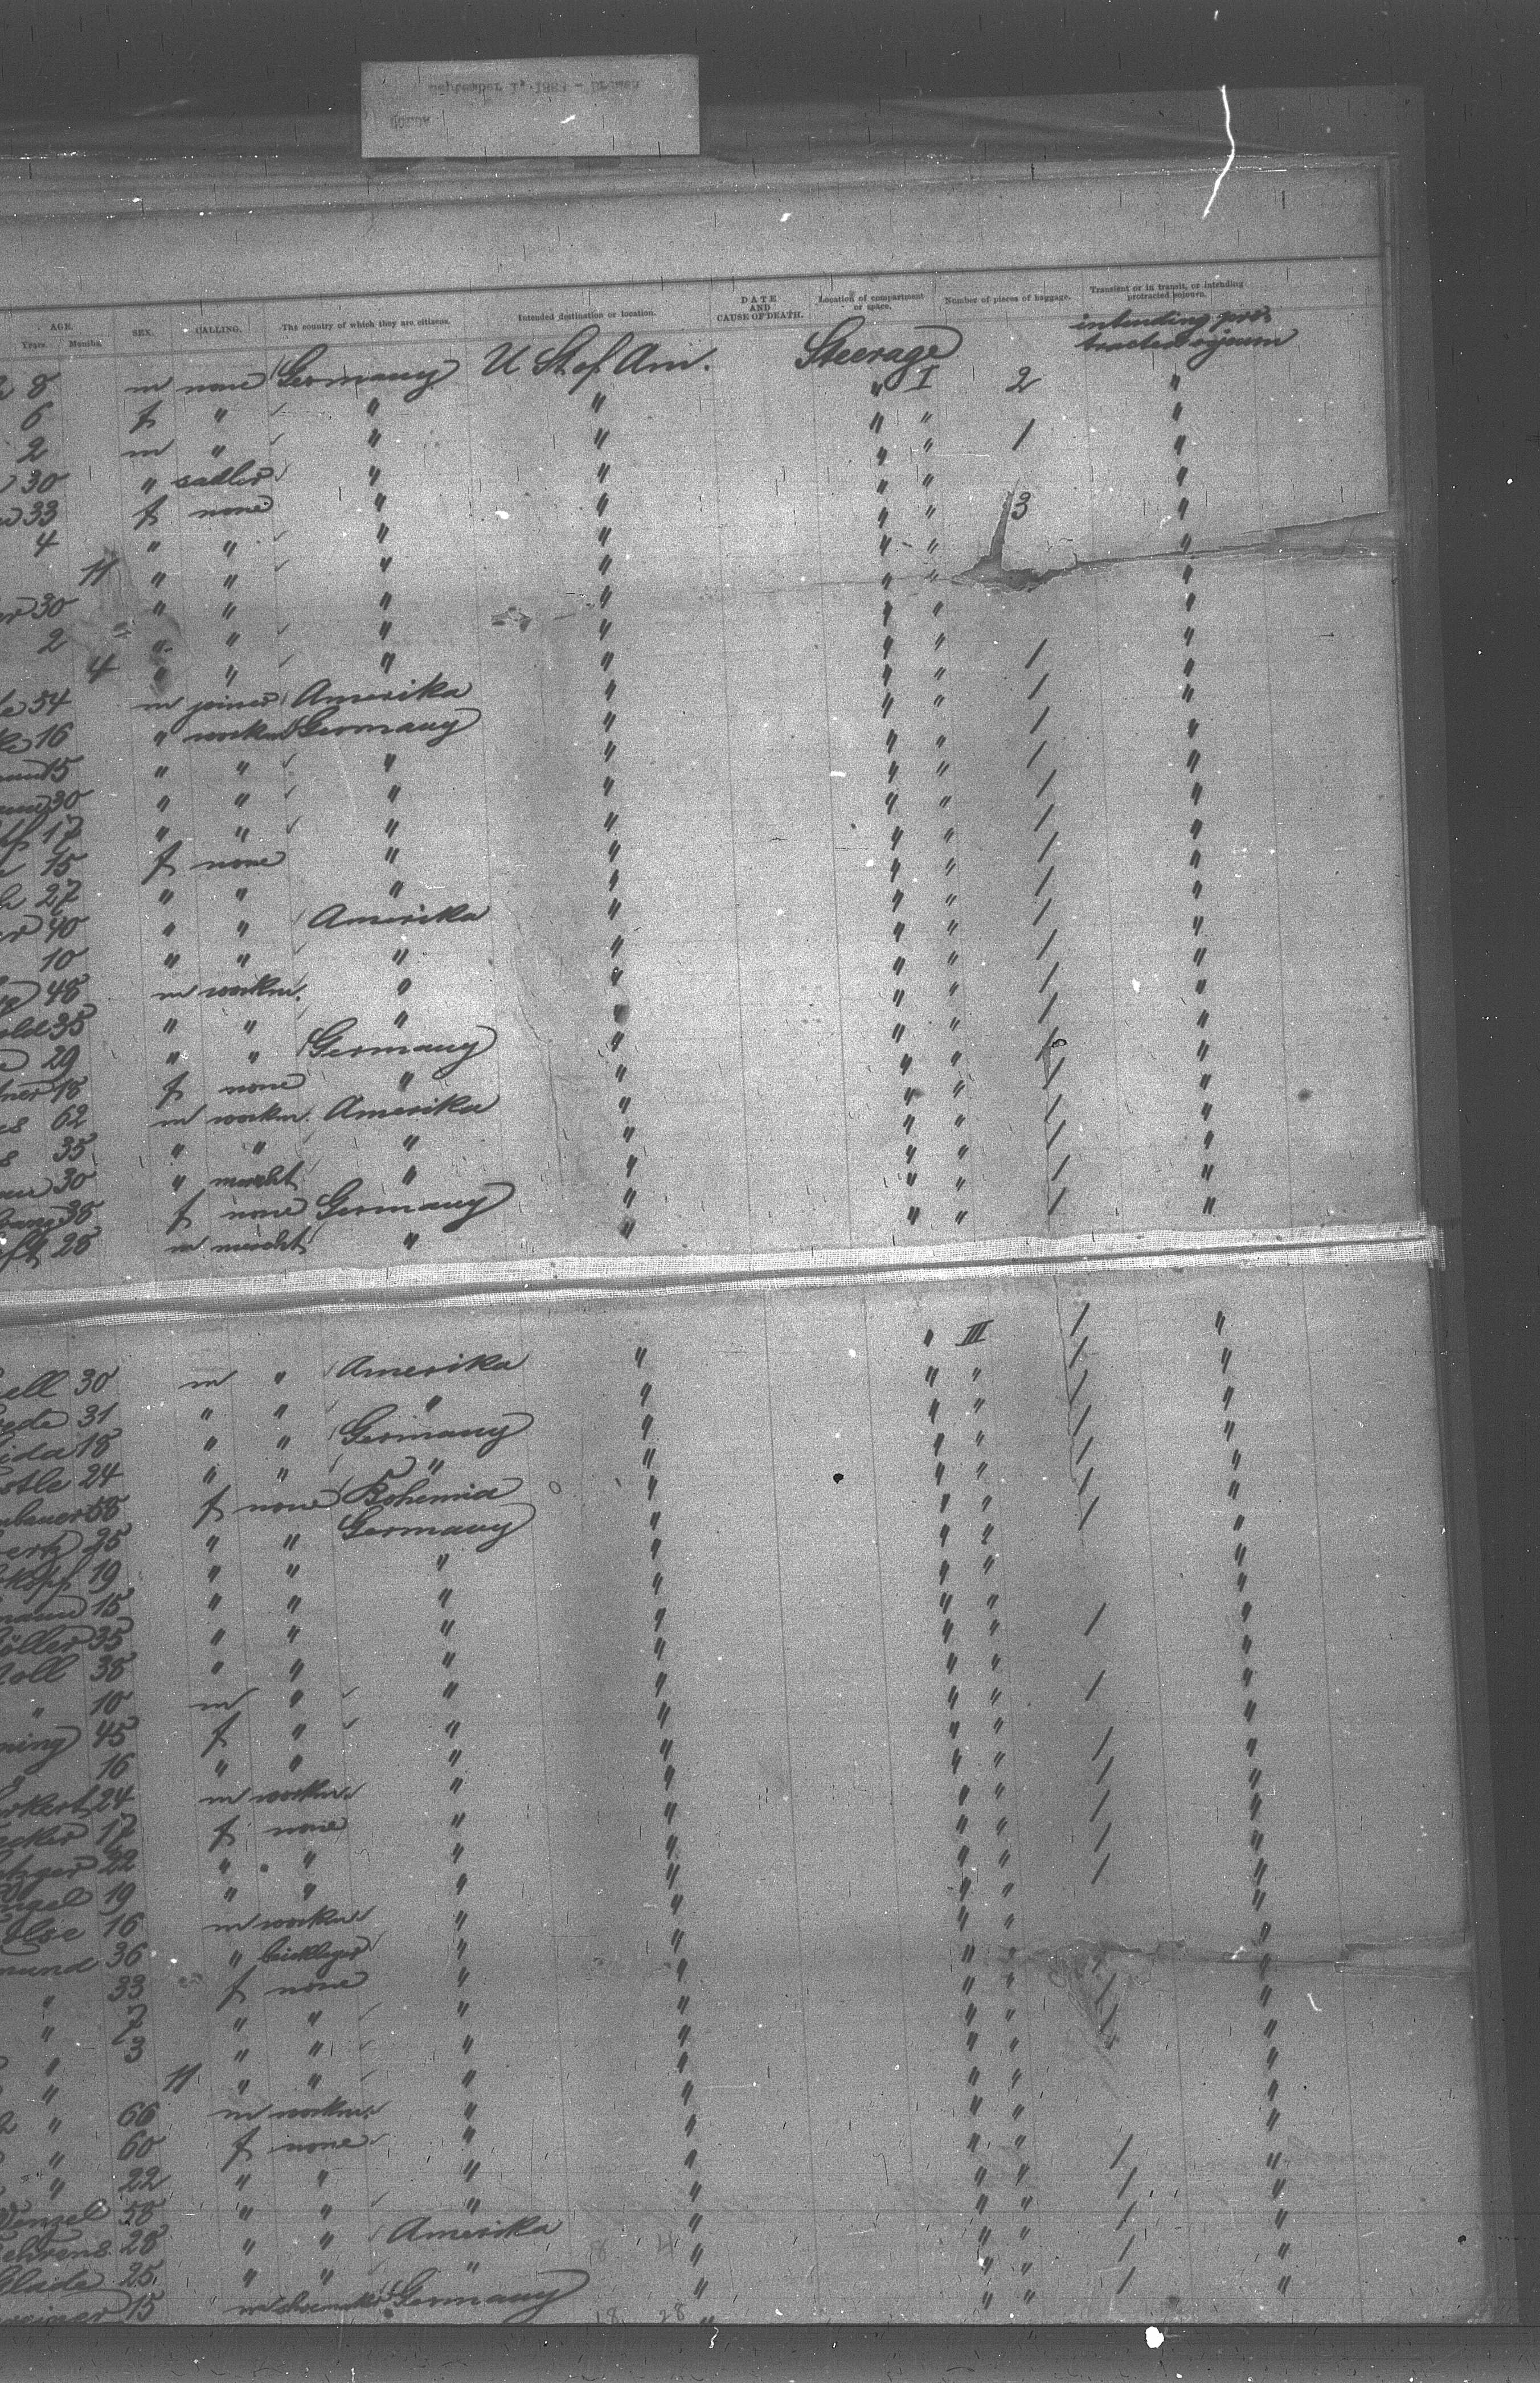 September 1, 1883 - Bremen
Donau
AGE. SEX. CALLING. The country of which they are citizens. Intended destination or location. DATE AND CAUSE OF DEATH. Location of compartment or space. Number of pieces of baggage. Transient or in transit, or intending protracted sojourn.
Years. Months.
8 m none Germany U St of Am. Steerage I 2 intending protracted sojourn
6 f " " " " " "
2 m " " " " " 1 "
30 " sadler " " " " "
33 f none " " " " 3 "
4 " " " " " " "
11 " " " " " " "
30 " " " " " " "
2 " " " " " " "
4 " " " " " " 1 "
54 m joiner Amerika " " " 1 "
16 " workm Germany " " " 1 "
15 " " " " " " 1 "
30 " " " " " " 1 "
17 " " " " " " 1 "
15 f none " " " " 1 "
27 " " " " " " 1 "
40 " " Amerika " " " 1 "
10 " " " " " " 1 "
48 m workm. " " " " 1 "
35 " " " " " " 1 "
29 " " Germany " " " 1 "
18 f none " " " " 1 "
62 m workm. Amerika " " " 1 "
35 " " " " " " 1 "
30 " mercht " " " " 1 "
38 f none Germany " " " 1 "
28 m mercht " " " "
30 m " Amerika " " III 1 "
31 " " " " " " 1 "
18 " " Germany " " " 1 "
24 " " " " " " 1 "
nbauer 55 f none Bohemia " " " 1 "
25 " " Germany " " " 1 "
kopf 19 " " " " " " 1 "
mann 15 " " " " " " "
öller 35 " " " " " " "
Noll 38 " " " " " " 1 "
" 10 m " " " " " "
ning 45 f " " " " " 1 "
16 " " " " " " "
24 m workm. " " " " 1 "
17 f none " " " " 1 "
22 " " " " " " 1 "
ngel 19 " " " " " " 1 "
16 m workm. " " " " 1 "
mund 36 " bricklayer " " " " "
" 33 f none " " " " "
" 7 " " " " " " "
" 3 " " " " " " "
" 11 " " " " " " "
" 66 m workm. " " " " "
" 60 f none " " " " "
" 22 " " " " " " 1 "
Wenzel 58 " " " " " " 1 "
Behrens 28 " " Amerika " " " 1 "
Glade 25 " " " " " " 1 "
15 m shoemaker Germany " " " 1 "
18 28